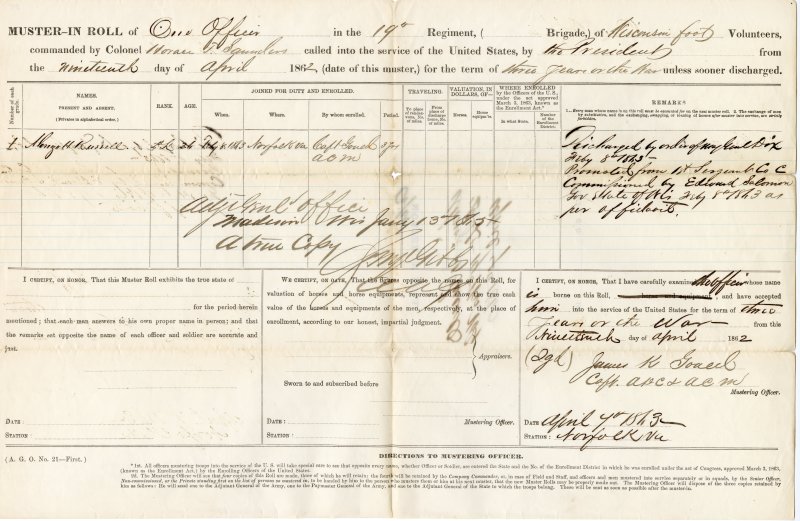 MUSTER-IN ROLL of One Officer in the 19th Regiment, ( Brigade,) of Wisconsin foot Volunteers,
commanded by Colonel Horace T. Saunders called into the service of the United States, by the President from
the Nineteenth day of April 1862 (date of this muster,) for the term of three Years or the War unless sooner discharged.
Number of each grade.
NAMES.
PRESENT AND ABSENT.
(Privates in alphabetical order.)
RANK.
AGE.
JOINED FOR DUTY AND ENROLLED.
When.
Where.
By whom enrolled.
Period.
TRAVELING.
To place of rendezvous, No. of miles.
From place of discharge home, No. of miles.
VALUATION, IN DOLLARS, OF—
Horses.
Horse equipm'ts.
WHERE ENROLLED
by the Officers of the U. S., under the act approved March 3, 1863, known as the Enrollment Act.*
In what State.
Number of the Enrollment District.
REMARKS
1... Every man whose name is on this roll must be accounted for on the next muster roll. 2. The exchange of men by substitution, and the exchanging, swapping, or loaning of horses after muster into service, are strictly forbidden.
1. Alonzo H Russell 2d Lt. 26 Norfolk Va Capt Goacel 3 yrs
A C M
Discharged by order of Maj Genl Dix
Feby 8th 1863
Promoted from 1st Sergeant Co C
Commissioned by Edward Salomon
Gov State of Wis Feby 8th 1863 as
per affidavit.
Adjt Genl Office
Madison Wis Jany 1865
A true Copy
I CERTIFY, ON HONOR, That this Muster Roll exhibits the true state of
for the period herein
mentioned; that each man answers to his own proper name in person; and that
the remarks set opposite the name of each officer and soldier are accurate and
just.
DATE:
STATION:
WE CERTIFY, ON OATH, That the figures opposite the name on this Roll, for
valuation of horses and horse equipments, represent and show the true cash
value of the horses and equipments of the men, respectively, at the place of
enrollment, according to our honest, impartial judgment.
Appraisers.
Sworn to and subscribed before
DATE:
Mustering Officer.
STATION:
I CERTIFY, ON HONOR, That I have carefully examined the officer whose name
is borne on this Roll, horses and equipments, and have accepted
him into the service of the United States for the term of three
Years or the War from this
Nineteenth day of April 1862
(Sgd) James K Goacel
Capt. A D C & A C M
Mustering Officer.
DATE April 7th 1863
STATION: Norfolk Va
(A. G. O. No. 21—First.)
DIRECTIONS TO MUSTERING OFFICER.
*1st. All officers mustering troops into the service of the U. S. will take special care to see that opposite every name, whether Officer or Soldier, are entered the State and the No. of the Enrollment District in which he was enrolled under the act of Congress, approved March 3, 1863,
(known as the Enrollment Act,) by the Enrolling Officers of the United States.
2d. The Mustering Officer will see that four copies of this Roll are made, three of which he will retain; the fourth will be retained by the Company Commander, or, in case of Field and Staff, and officers and men mustered into service separately or in squads, by the Senior Officer,